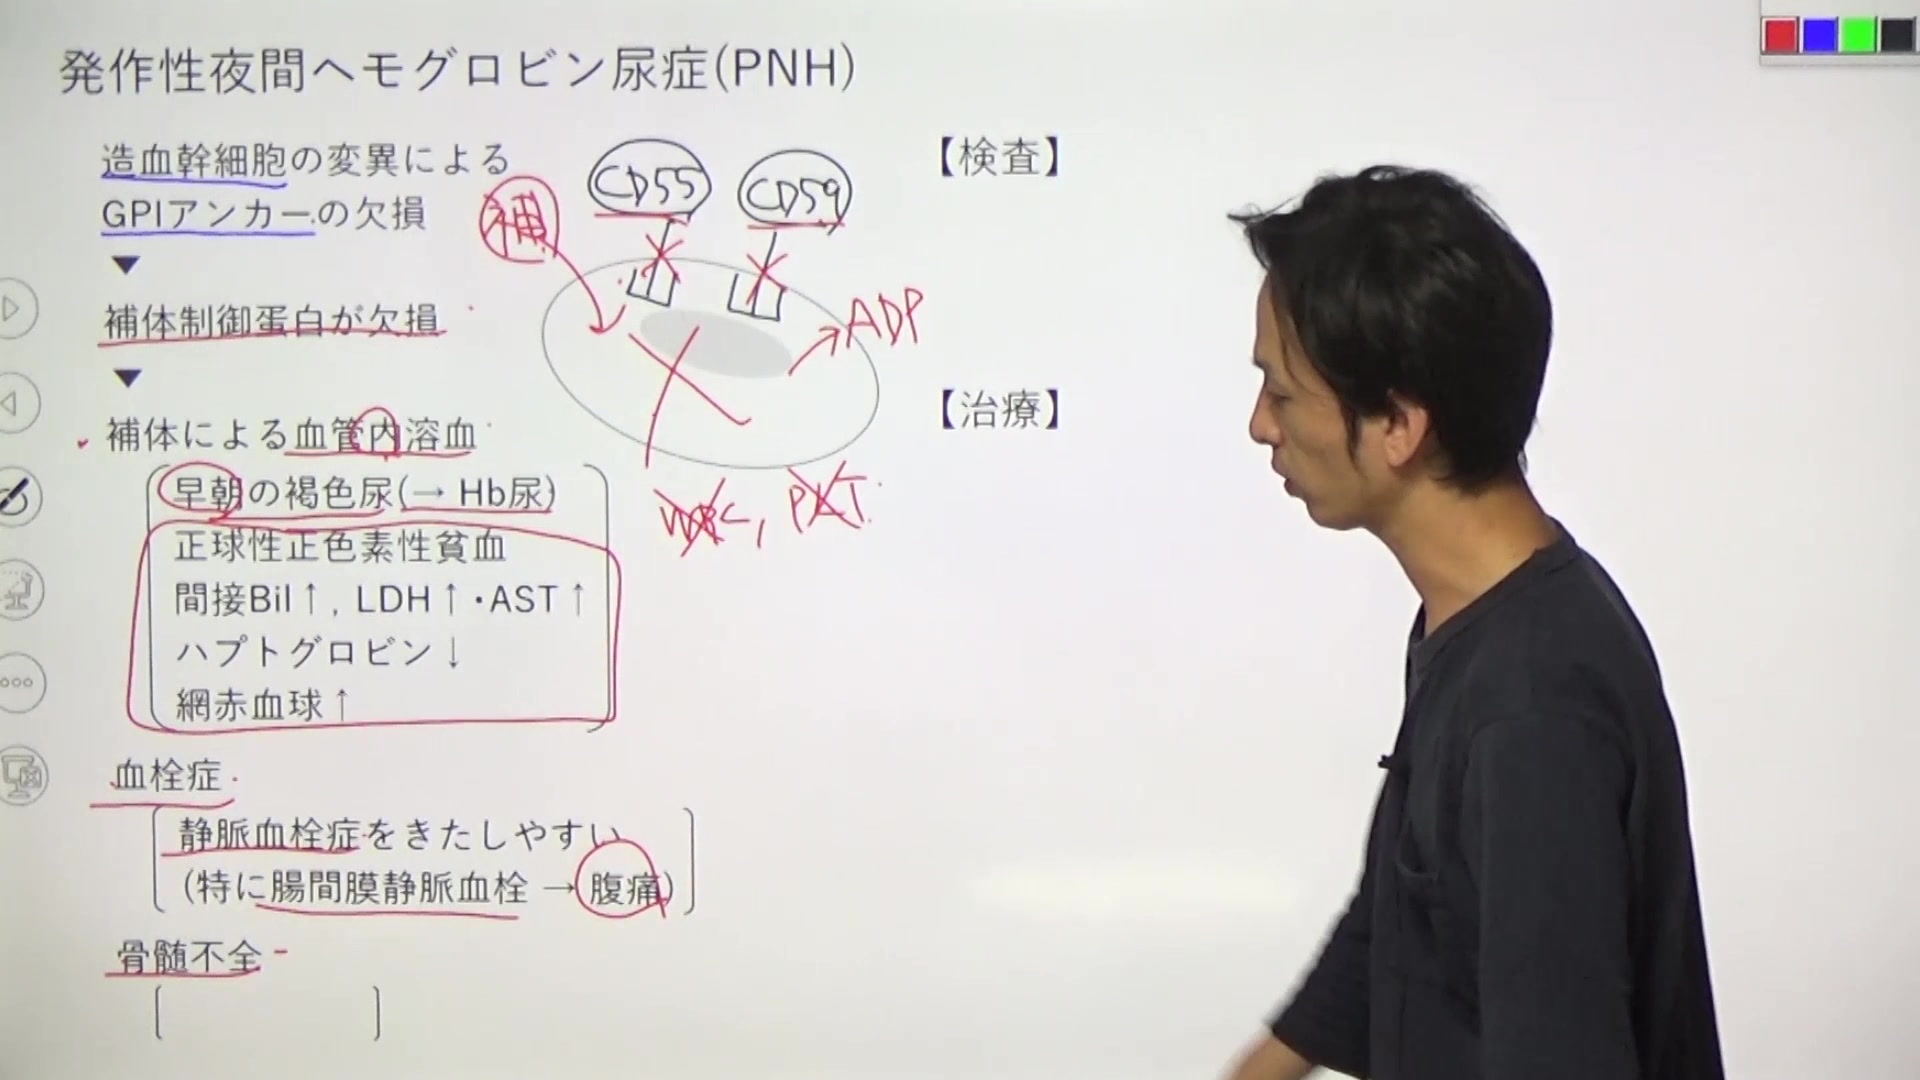 発作性夜間ヘモグロビン尿症(PNH)
造血幹細胞の変異による
GPIアンカーの欠損
▼
補体制御蛋白が欠損
▼
補体による血管内溶血
早朝の褐色尿(→ Hb尿)
正球性正色素性貧血
間接Bil↑, LDH↑・AST↑
ハプトグロビン↓
網赤血球↑
血栓症
静脈血栓症をきたしやすい
(特に腸間膜静脈血栓 → 腹痛)
骨髄不全
補
CD55
CD59
ADP
WBC, PLT
【検査】
【治療】